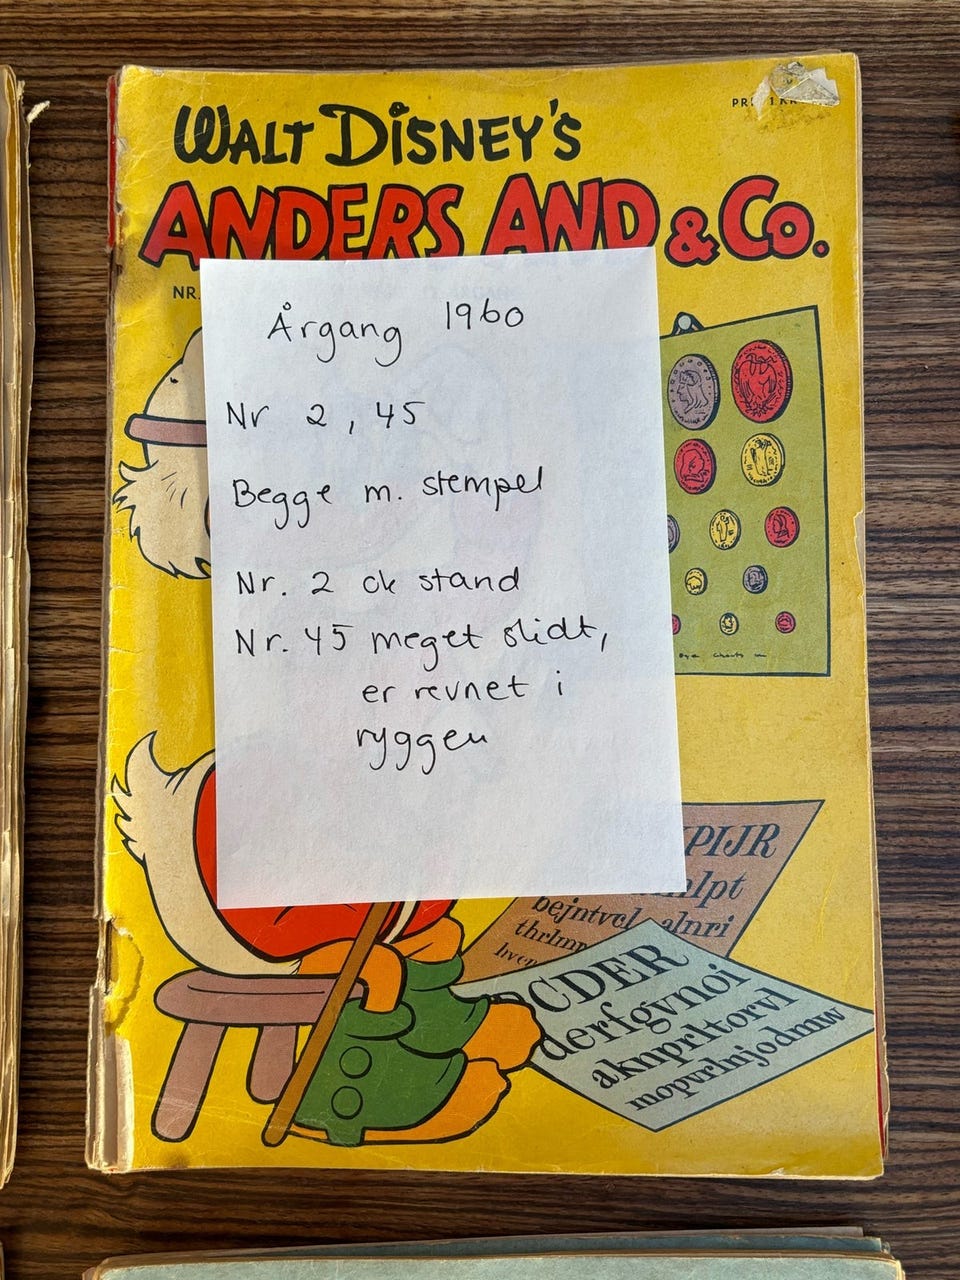 WALT DISNEY'S
ANDERS AND & Co.
NR.
Årgang 1960
Nr 2, 45
Begge m. stempel
Nr. 2 ok stand
Nr. 45 meget slidt,
er revnet i
ryggen
PIJR
lpt
bejntvcl alnri
CDER
derfgvnoi
aknprltorvl
mopvrlnjodnmw